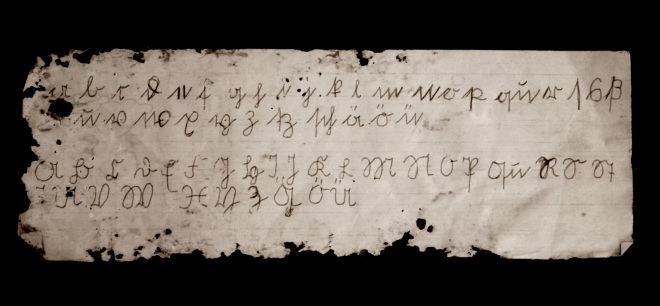 a b c d e f g h i j k l m n o p qu r ſ s ß
u v w x y z tz ſch ä ö ü
A B C D E F G H I J K L M N O P Qu R S St
U V W X Y Z Ä Ö Ü